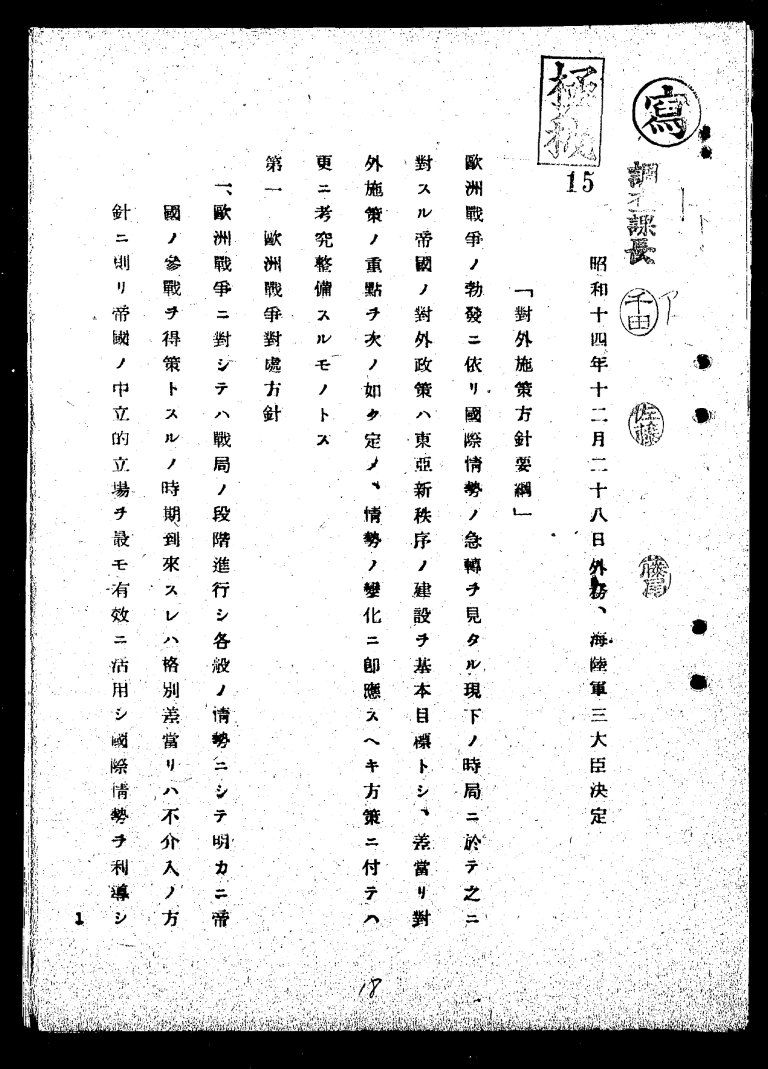 寫
極秘
15
課長
千田
佐藤
藤尾
昭和十四年十二月二十八日外務、海陸軍三大臣決定
「對外施策方針要綱」
歐洲戰爭ノ勃發ニ依リ國際情勢ノ急轉ヲ見タル現下ノ時局ニ於テ之ニ
對スル帝國ノ對外政策ハ東亞新秩序ノ建設ヲ基本目標トシ、差當リ對
外施策ノ重點ヲ次ノ如ク定メ、情勢ノ變化ニ卽應スヘキ方策ニ付テハ
更ニ考究整備スルモノトス
第一 歐洲戰爭對處方針
一、歐洲戰爭ニ對シテハ戰局ノ段階進行シ各般ノ情勢ニシテ明カニ帝
國ノ參戰ヲ得策トスルノ時期到來スレハ格別差當リハ不介入ノ方
針ニ則リ帝國ノ中立的立場ヲ最モ有效ニ活用シ國際情勢ヲ利導シ
1
18